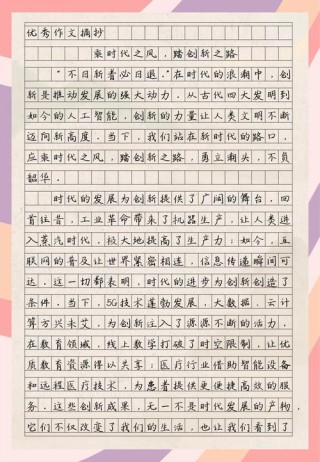 优秀作文摘抄
乘时代之风，踏创新之路
“不日新者必日退。”在时代的浪潮中，创
新是推动发展的强大动力。从古代四大发明到
如今的人工智能，创新的力量让人类文明不断
迈向新高度。当下，我们站在新时代的路口，
应乘时代之风，踏创新之路，勇立潮头，不负
韶华。
时代的发展为创新提供了广阔的舞台。回
首往昔，工业革命带来了机器生产，让人类进
入蒸汽时代，极大地提高了生产力；如今，互
联网的普及让世界紧密相连，信息传递瞬间可
达。这一切都表明，时代的进步为创新创造了
条件。当下，5G技术蓬勃发展，大数据、云计
算方兴未艾，为创新注入了源源不断的活力，
在教育领域，线上教学打破了时空限制，让优
质教育资源得以共享；医疗行业借助智能设备
和远程医疗技术，为患者提供更便捷高效的服
务。这些创新成果，无一不是时代发展的产物，
它们不仅改变了我们的生活，也让我们看到了